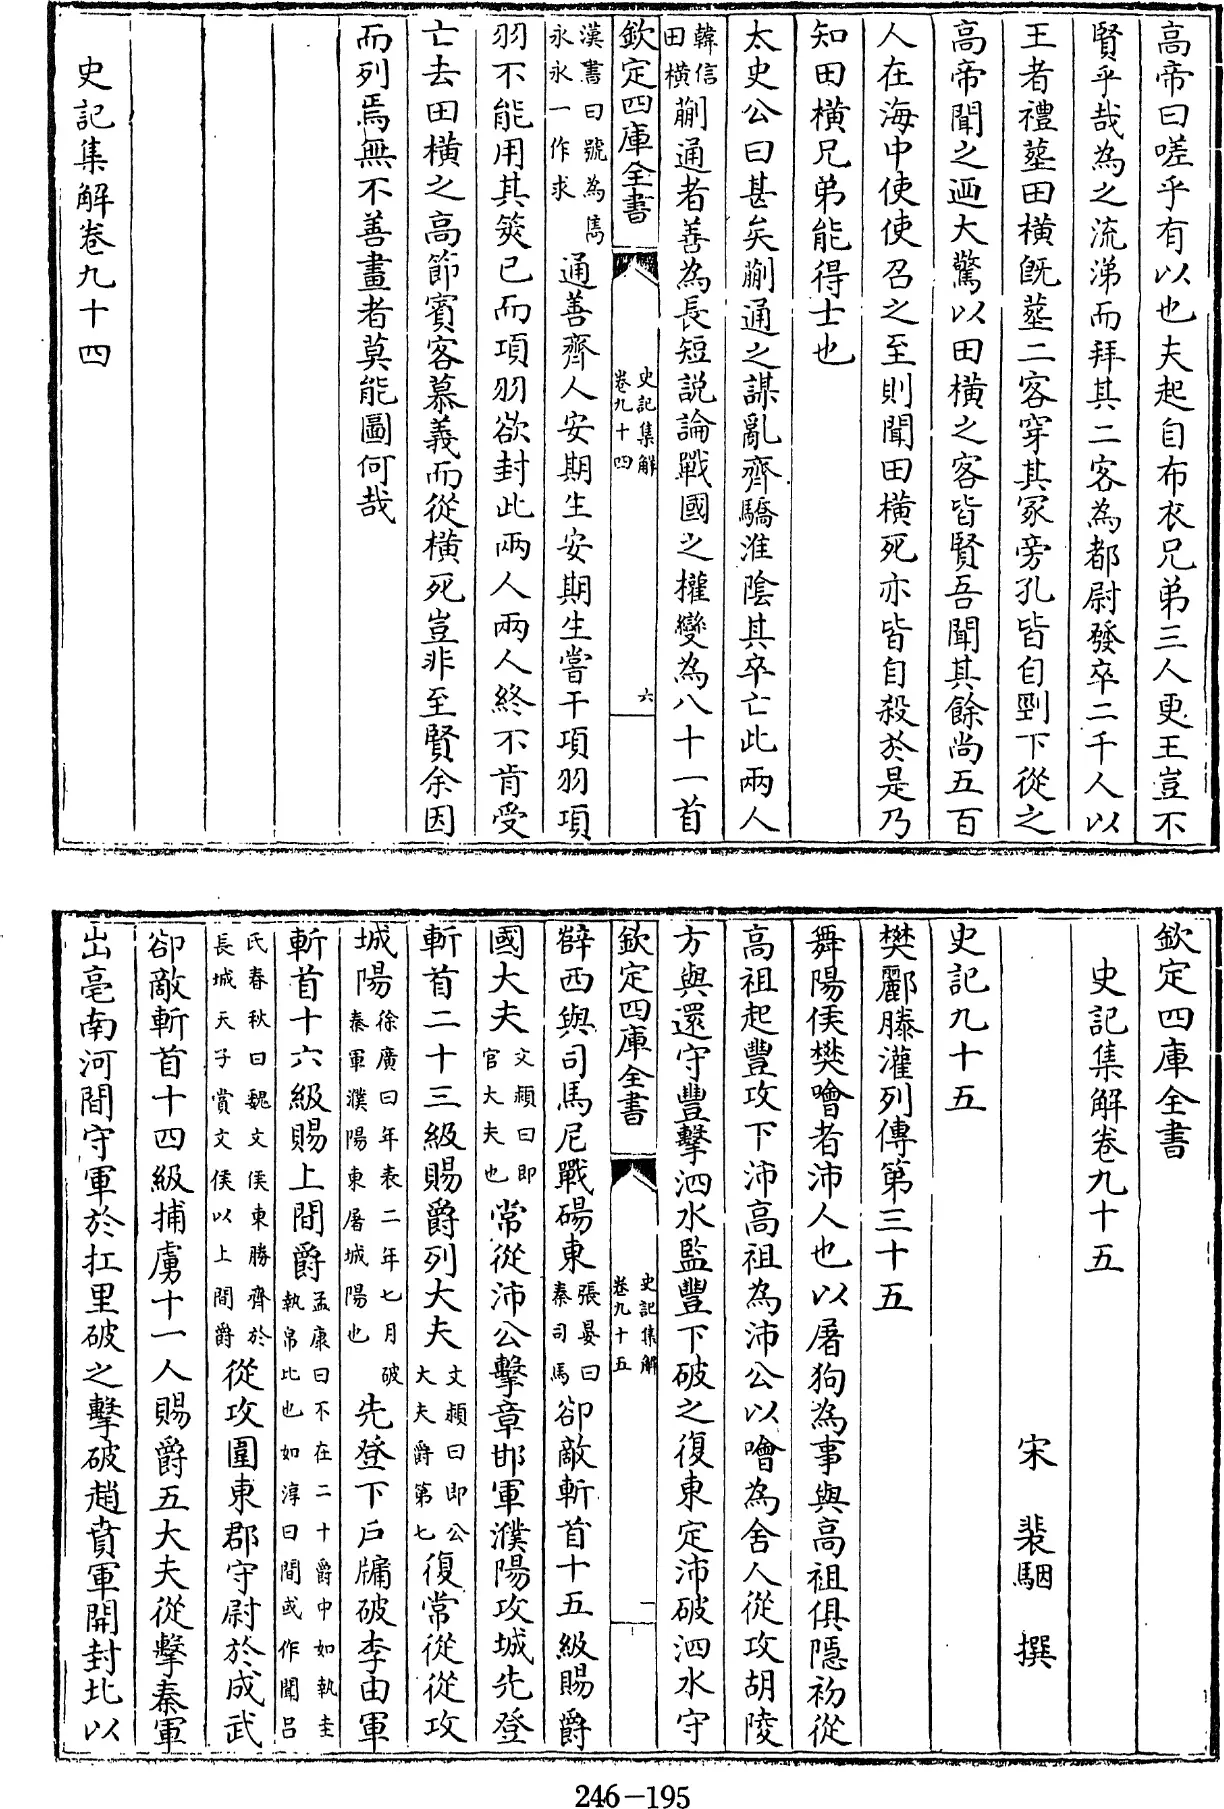 高帝曰嗟乎有以也夫起自布衣兄弟三人更王豈不
賢乎哉為之流涕而拜其二客為都尉發卒二千人以
王者禮塟田橫旣塟二客穿其冢旁孔皆自剄下從之
高帝聞之迺大驚以田橫之客皆賢吾聞其餘尚五百
人在海中使使召之至則聞田橫死亦皆自殺於是乃
知田橫兄弟能得士也
太史公曰甚矣蒯通之謀亂齊驕淮陰其卒亡此兩人
韓信
田橫
蒯通者善為長短說論戰國之權變為八十一首
欽定四庫全書
史記集解
卷九十四
六
漢書曰號為雋
永永一作求
通善齊人安期生安期生嘗干項羽項
羽不能用其筴已而項羽欲封此兩人兩人終不肯受
亡去田橫之高節賓客慕義而從橫死豈非至賢余因
而列焉無不善畫者莫能圖何哉
史記集解卷九十四
欽定四庫全書
史記集解卷九十五
宋 裴駰 撰
史記九十五
樊酈滕灌列傳第三十五
舞陽侯樊噲者沛人也以屠狗為事與高祖俱隱初從
高祖起豐攻下沛高祖為沛公以噲為舍人從攻胡陵
方與還守豐擊泗水監豐下破之復東定沛破泗水守
欽定四庫全書
史記集解
卷九十五
一
薛西與司馬尼戰碭東
張晏曰
秦司馬
卻敵斬首十五級賜爵
國大夫
文穎曰即
官大夫也
常從沛公擊章邯軍濮陽攻城先登
斬首二十三級賜爵列大夫
文穎曰即公
大夫爵第七
復常從從攻
城陽
徐廣曰年表二年七月破
秦軍濮陽東屠城陽也
先登下戶牖破李由軍
斬首十六級賜上間爵
孟康曰不在二十爵中如執圭
執帛比也如淳曰間或作聞呂
氏春秋曰魏文侯東勝齊於
長城天子賞文侯以上間爵
從攻圍東郡守尉於成武
卻敵斬首十四級捕虜十一人賜爵五大夫從擊秦軍
出亳南河間守軍於扛里破之擊破趙賁軍開封北以
246-195